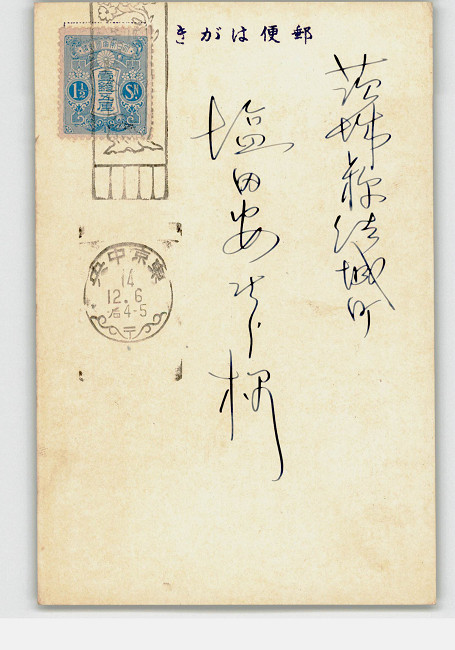 郵便はがき
茨城縣結城町
塩田安一郎様
1½ SN.
壹錢五厘
東京中央
14
12.6
后4-5
〒